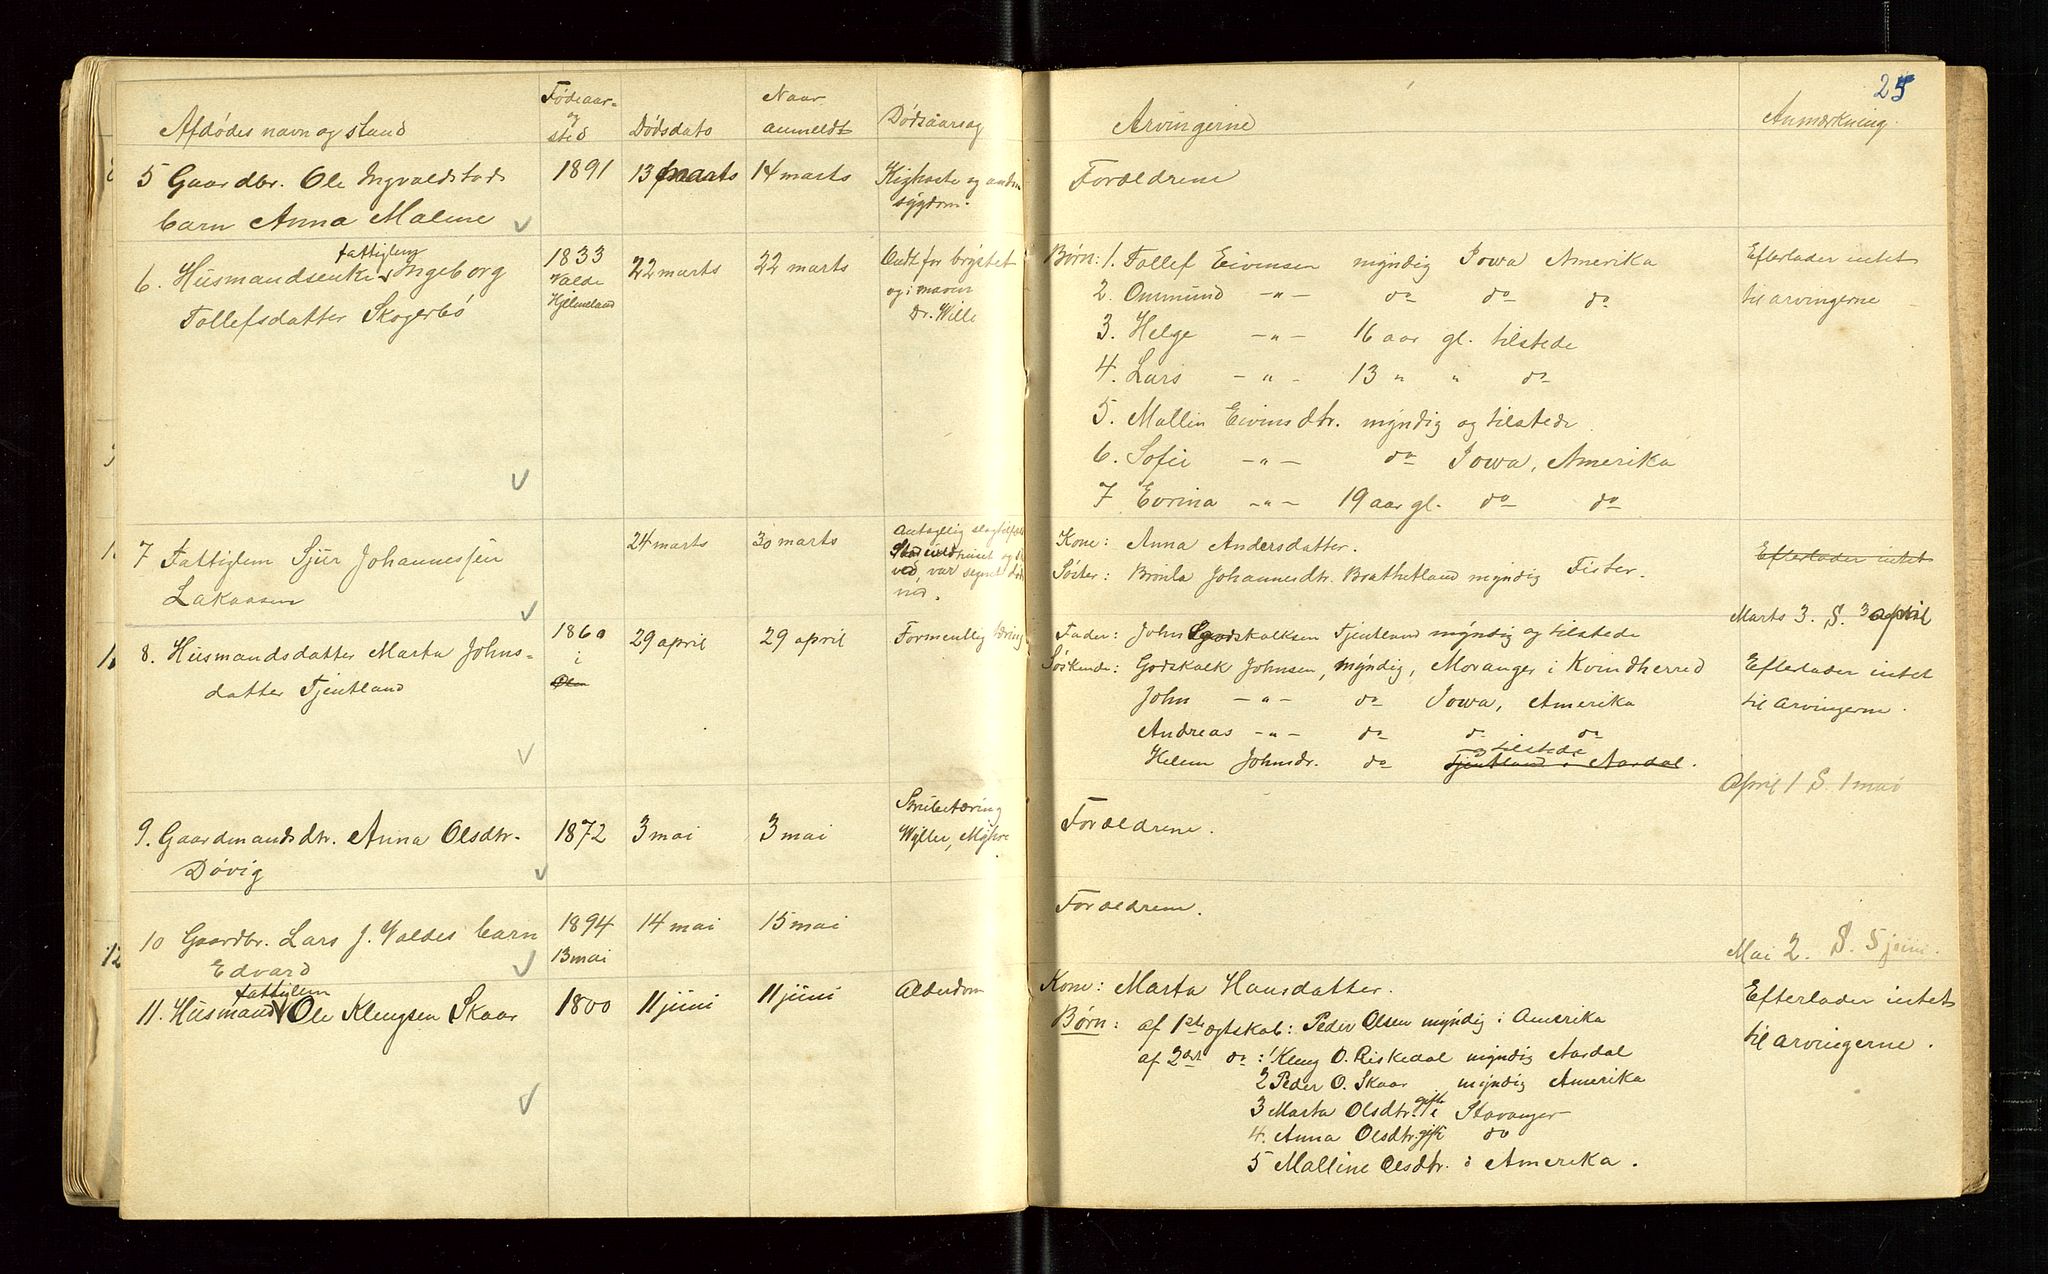 25
Afdødes navn og stand
Fødeaar- og sted
Dødsdato
Naar anmeldt
Dødsaarsag
Arvingerne
Anmærkning.
5 Gaardbr. Ole Ingvaldstads 1891 13 marts 14 marts Kighoste og anden
barn Anna Malene sygdom.
Forældrene
6. Husmandsenke fattiglem Ingeborg 1833 22 marts 22 marts Ondt for brystet
Tollefsdatter Skogerbø Valde og i maven
Hjelmeland Dr. Wille
Børn: 1. Tollef Eivensen myndig Iowa Amerika Efterlader intet
2. Ommund -"- do do do til arvingerne
3. Helge -"- 16 aar gl. tilstede
4. Lars -"- 13 " " do
5. Mallin Eivinsdtr. myndig og tilstede
6. Sofie -"- do Iowa, Amerika
7 Evrina -"- 19 aar gl. do do
7 Fattiglem Sjur Johannessen 24 marts 30 marts Antagelig slagtilfælde
Lakaasen
ved, var segnet død
ned.
Kone: Anna Andersdatter. Efterlader intet
Søster: Brønla Johannesdtr. Brathetland myndig Fister.
Marts 3. S. 3 april
8. Husmandsdatter Marta Johns- 1860 29 april 29 april Formentlig tæring
datter Tjentland i
Ølen
Fader: John Godskalksen Tjentland myndig og tilstede
Søskende: Godskalk Johnsen, myndig, Moranger i Kvindherred Efterlader intet
John -"- do Iowa, Amerika til arvingerne.
Andreas -"- do do do
og tilstede
Helene Johnsdr. do Tjentland i Aardal.
April 1 S. 1 mai
9. Gaardmandsdtr. Anna Olsdtr. 1872 3 mai 3 mai Strubetæring
Døvig Wyller, Myhre
Forældrene.
10 Gaardbr. Lars J. Valdes barn 1894 14 mai 15 mai
Edvard 13 mai
Forældrene.
Mai 2. S. 5 juni.
11. Husmand fattiglem Ole Klengsen Skaar 1800 11 juni 11 juni Alderdom
Kone: Marta Hansdatter. Efterlader intet
Børn: af 1ste ægtskab: Peder Olsen myndig i Amerika til arvingerne.
af 2det do: 1 Kleng O. Riskedal myndig Aardal
2 Peder O. Skaar myndig Amerika
3 Marta Olsdtr. gift i Stavanger
4. Anna Olsdtr. gift do
5 Malline Olsdtr. i Amerika.